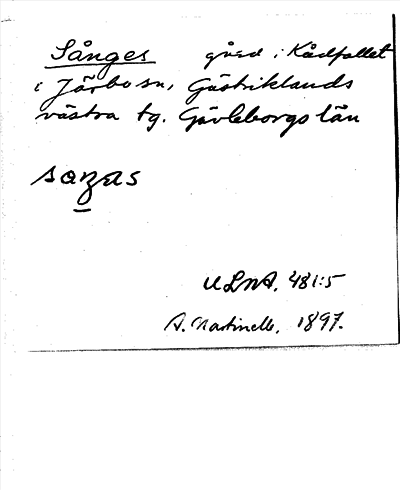 Sånges gård i Kådfallet
i Järbo sn, Gästriklands
västra tg. Gävleborgs län
ULMA, 481:5
A. Martinelle, 1897.